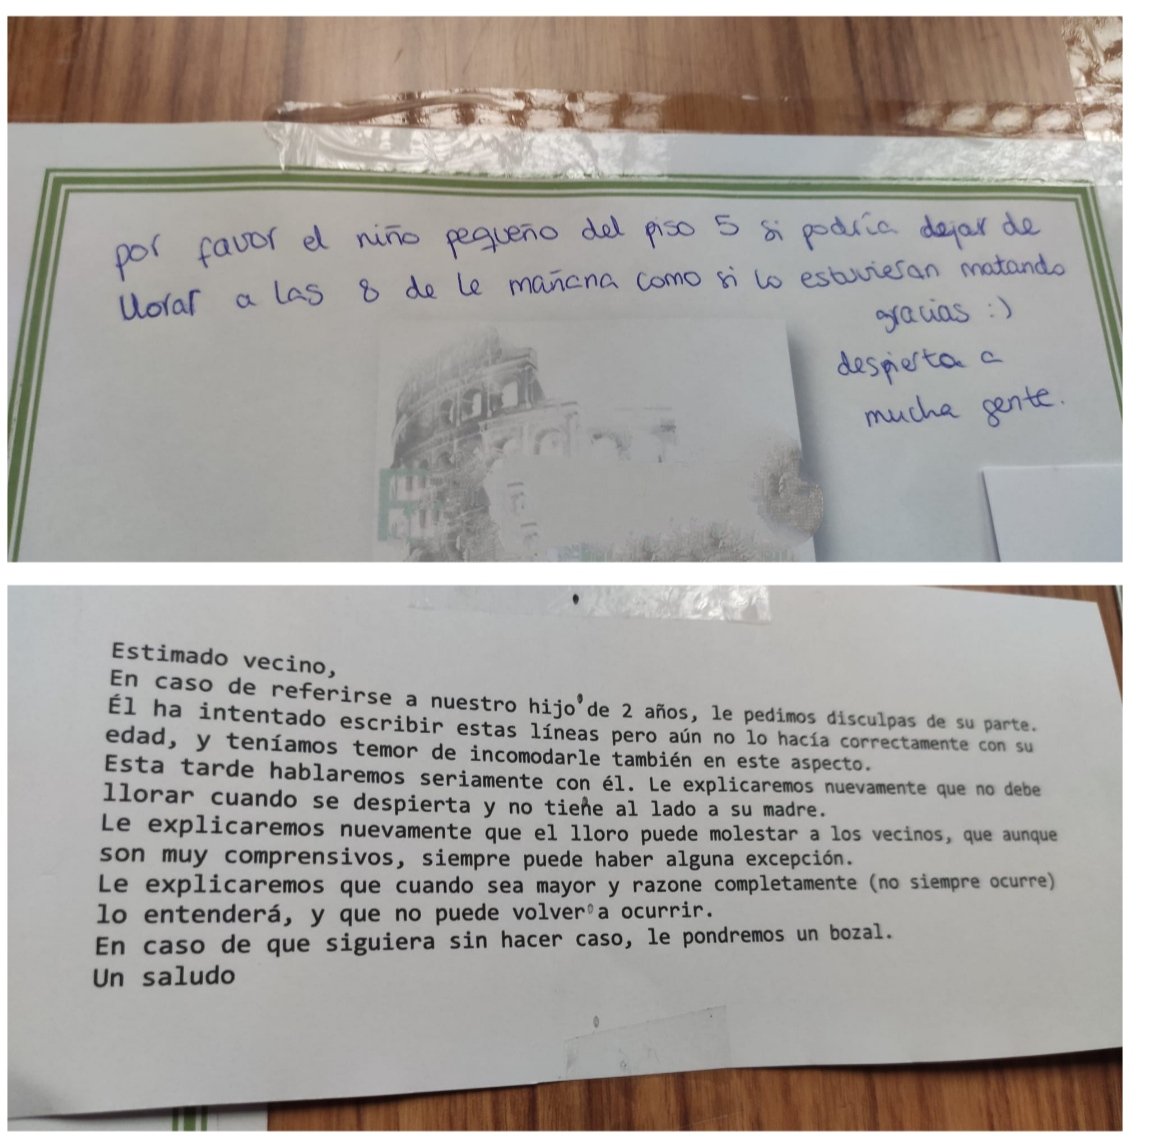 por favor el niño pequeño del piso 5 si podría dejar de
llorar a las 8 de le mañana como si lo estuvieran matando
gracias :)
despierta a
mucha gente.
Estimado vecino,
En caso de referirse a nuestro hijo de 2 años, le pedimos disculpas de su parte.
Él ha intentado escribir estas líneas pero aún no lo hacía correctamente con su
edad, y teníamos temor de incomodarle también en este aspecto.
Esta tarde hablaremos seriamente con él. Le explicaremos nuevamente que no debe
llorar cuando se despierta y no tiene al lado a su madre.
Le explicaremos nuevamente que el lloro puede molestar a los vecinos, que aunque
son muy comprensivos, siempre puede haber alguna excepción.
Le explicaremos que cuando sea mayor y razone completamente (no siempre ocurre)
lo entenderá, y que no puede volver a ocurrir.
En caso de que siguiera sin hacer caso, le pondremos un bozal.
Un saludo